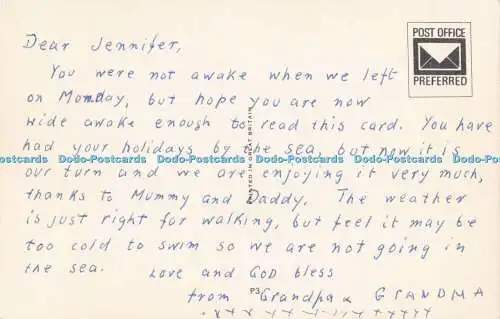 POST OFFICE
PREFERRED
Dear Jennifer,
You were not awake when we left
on Monday, but hope you are now
wide awake enough to read this card. You have
had your holidays by the sea, but now it is
Dodo-Postcards Dodo-Postcards Dodo-Postcards Dodo-Postcards Dodo-Postcards
our turn and we are enjoying it very much,
thanks to Mummy and Daddy. The weather
is just right for walking, but feel it may be
too cold to swim so we are not going in
the sea. Love and God bless
from Grandpa & GRANDMA
x x x x x x x x x x x x
PRINTED IN GREAT BRITAIN
P3